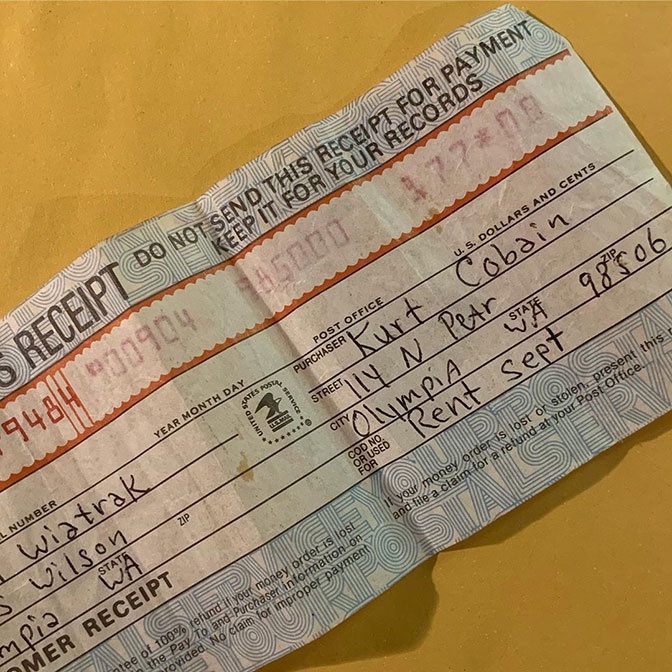 S RECEIPT DO NOT SEND THIS RECEIPT FOR PAYMENT
KEEP IT FOR YOUR RECORDS
9484 *00904 986000 $77*00
L NUMBER YEAR MONTH DAY POST OFFICE U.S. DOLLARS AND CENTS
Wiatrak
S Wilson ZIP
mpia STATE WA
OMER RECEIPT
UNITED STATES POSTAL SERVICE
PURCHASER Kurt Cobain
STREET 114 N Pear
CITY Olympia STATE WA ZIP 98506
COD NO. OR USED FOR Rent Sept
If your money order is lost or stolen, present this
and file a claim for a refund at your Post Office.
tee of 100% refund if your money order is lost
the Pay To and Purchaser Information on
rovided. No claim for improper payment